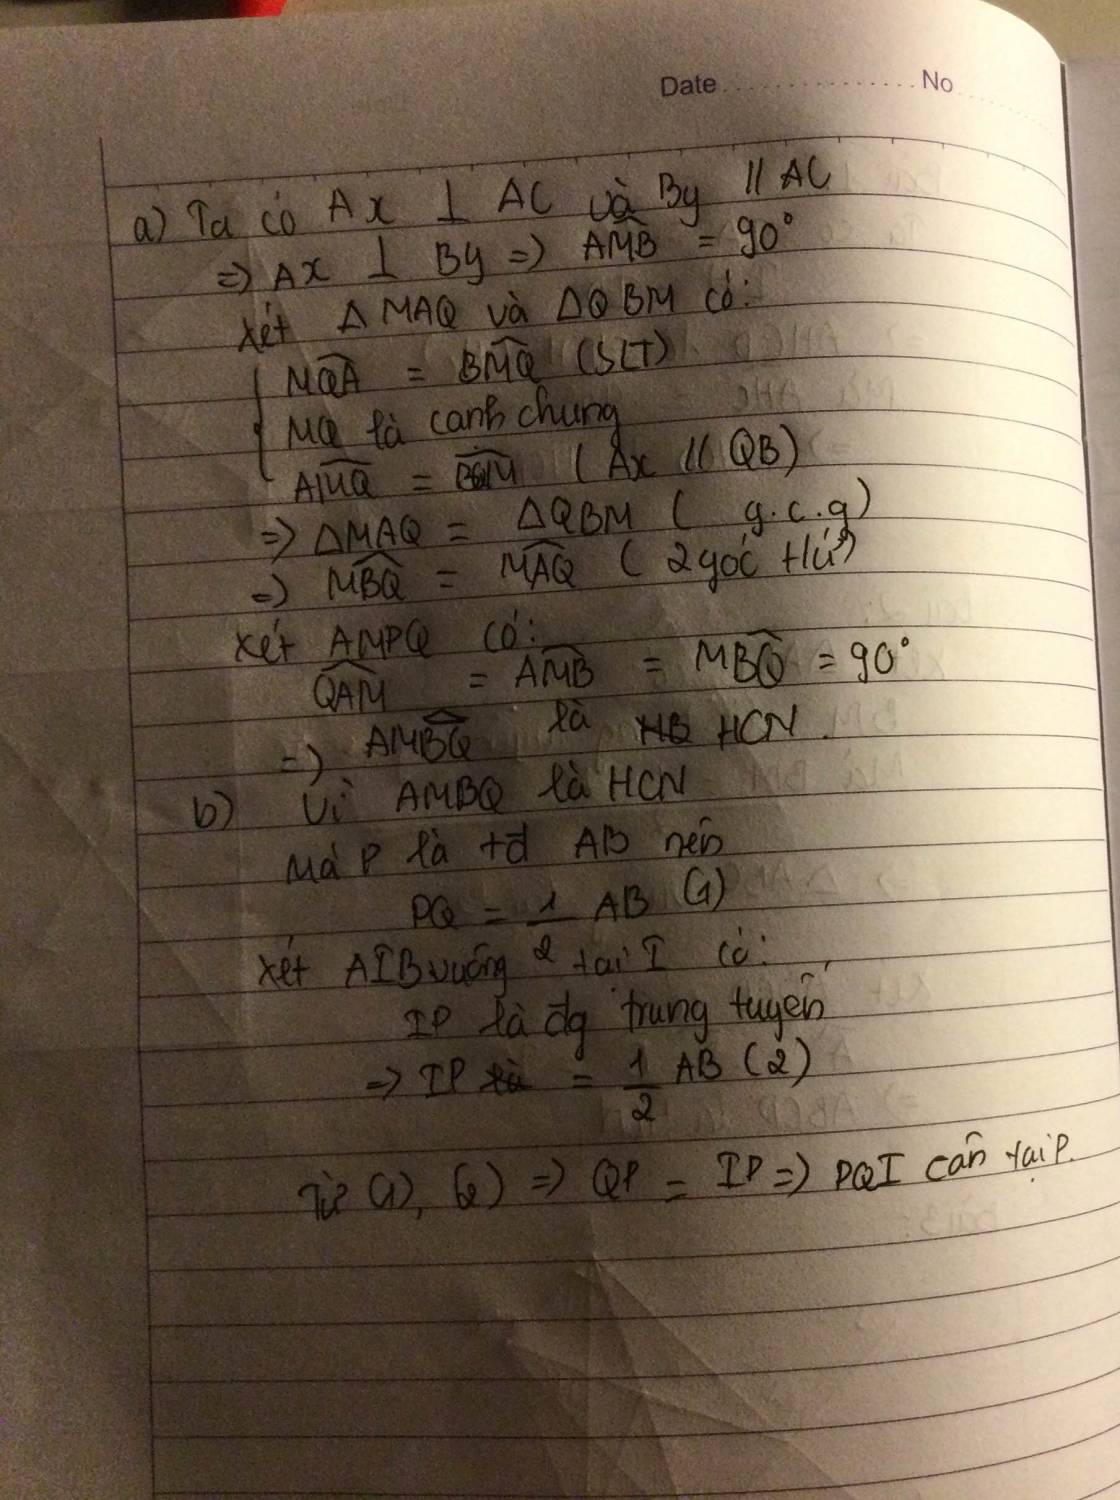 Date No
a) Ta có Ax ⊥ AC và By // AC
=> Ax ⊥ By => AMB = 90°
Xét Δ MAQ và ΔQBM có:
MQA = BMQ (SLT)
MQ là cạnh chung
AMQ = BQM ( Ax // QB)
=> ΔMAQ = ΔQBM ( g.c.g)
=> MBQ = MAQ ( 2 góc tứ)
Xét AMPQ có:
QAM = AMB = MBQ = 90°
=> AMBQ là HCN.
b) Vì AMBQ là HCN
Mà P là tđ AB nên
PQ = 1/2 AB (1)
Xét AIB vuông tại I có:
IP là đg trung tuyến
=> IP = 1/2 AB (2)
Từ (1), (2) => QP = IP => PQI cân tại P.